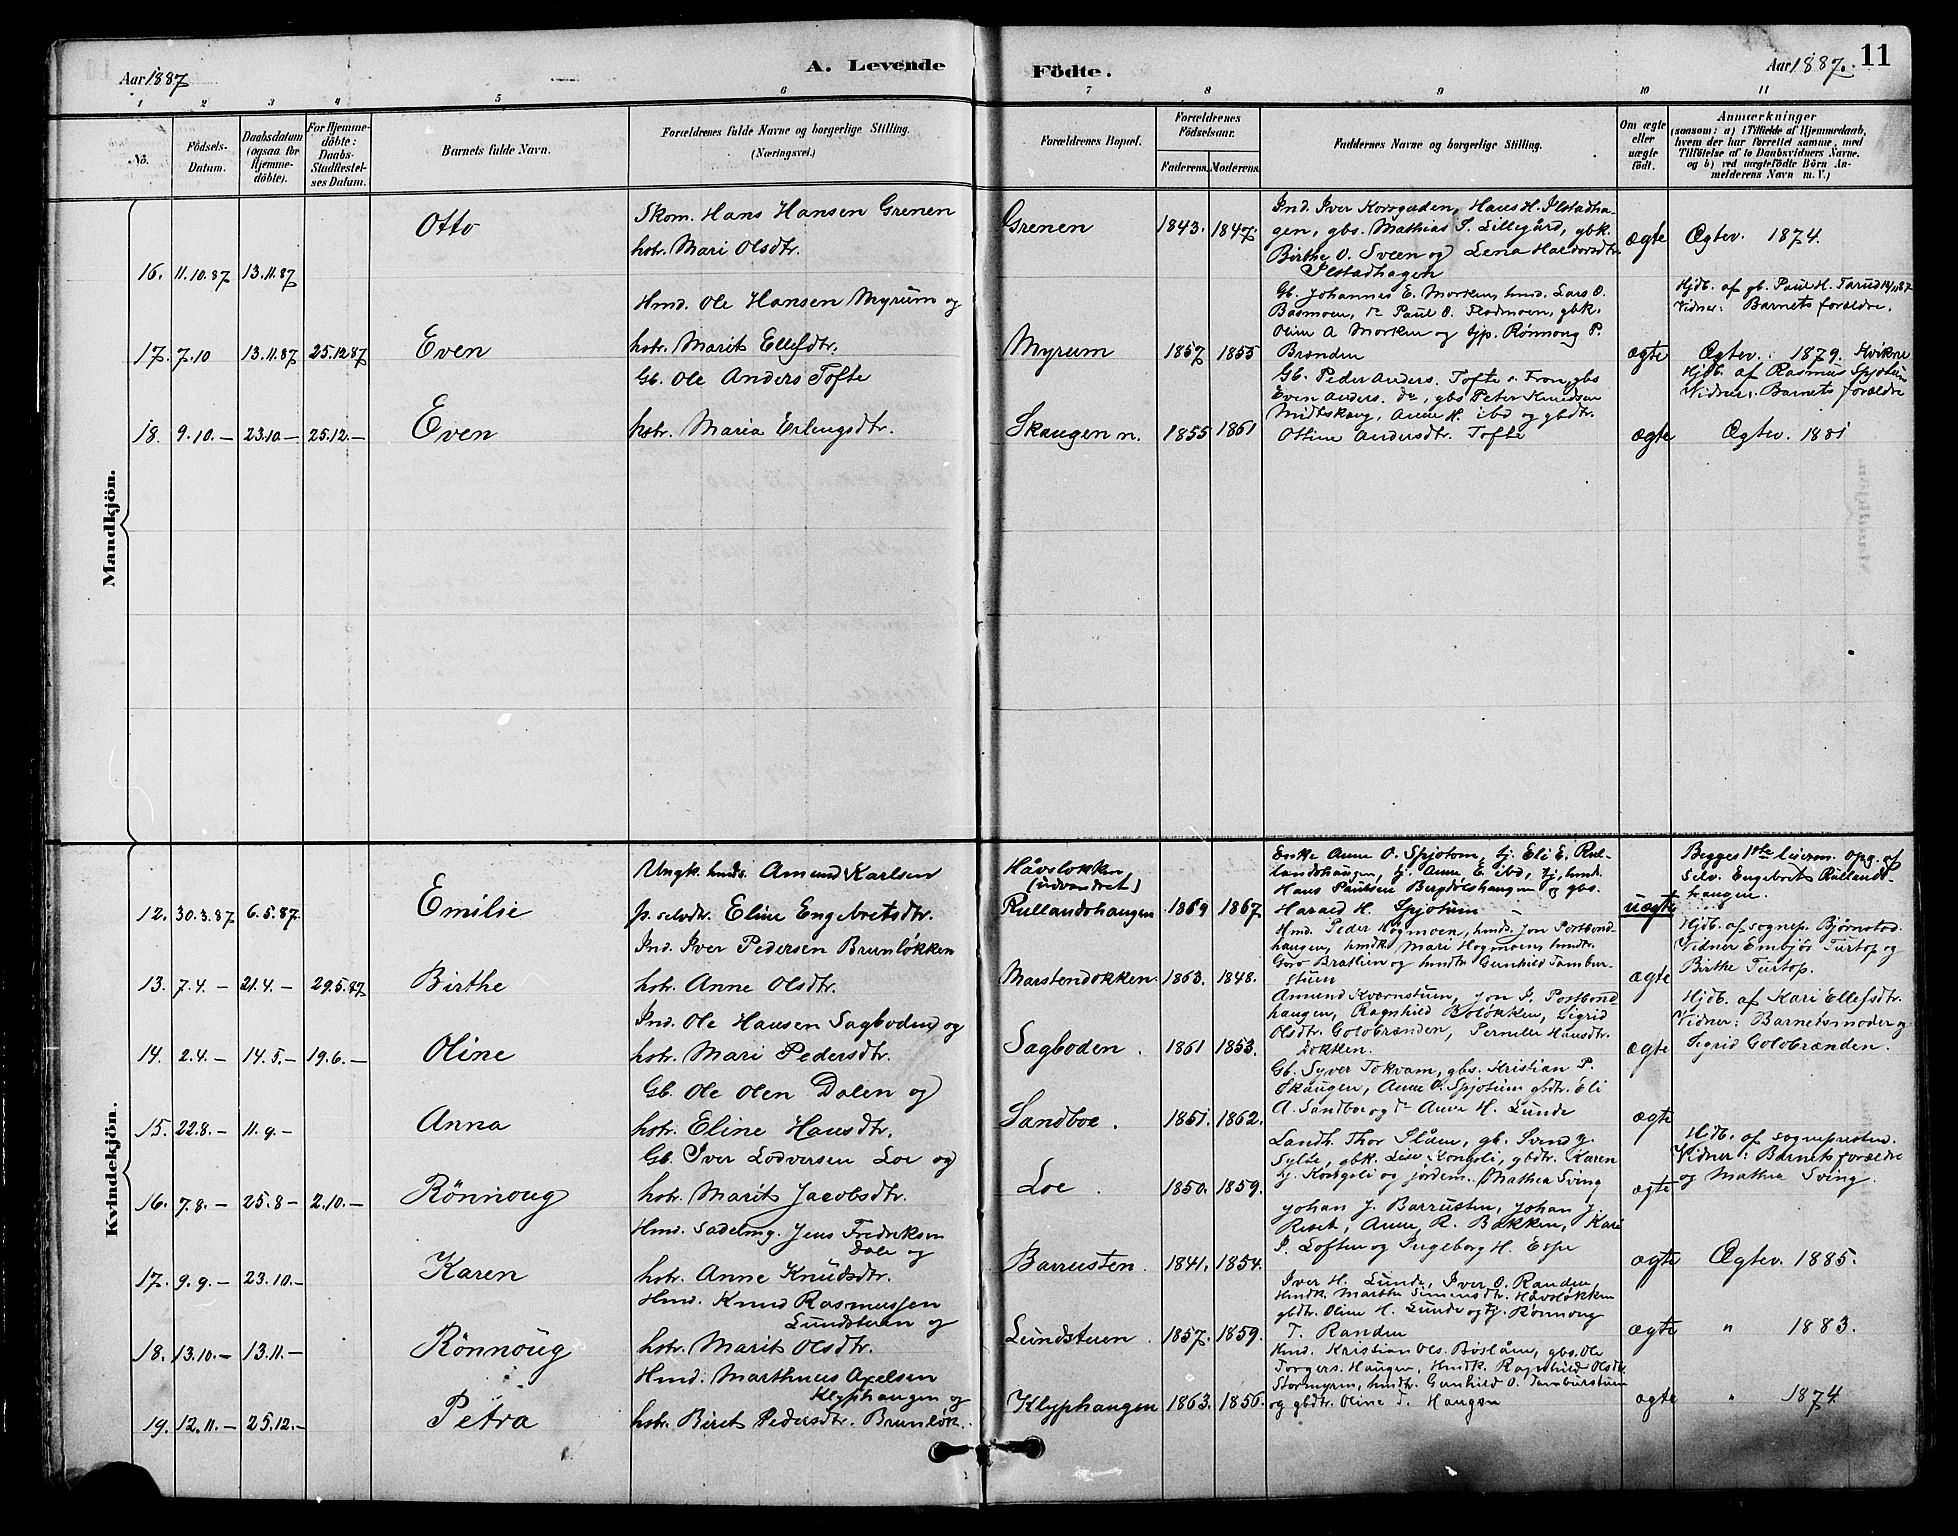 Aar 1887
A. Levende
Födte.
Aar 1887. 11
1 2 3 4 5 6 7 8 9 10 11
No.
Födsels-Datum.
Daabsdatum (ogsaa for Hjemme-döbte).
For Hjemme-döbte: Daabs-Stadfæstel-ses Datum.
Barnets fulde Navn.
Forældrenes fulde Navne og borgerlige Stilling.
(Næringsvei.)
Forældrenes Bopæl.
Forældrenes Födselsaar.
Faderens. Moderens.
Faddernes Navne og borgerlige Stilling.
Om ægte eller uægte födt.
Anmærkninger
(saasom: a) i Tilfælde af Hjemmedaab,
hvem der har forrettet samme, med
Tilföielse af to Daabsvidners Navne.
og b) ved uægtefödte Börn An-
melderens Navn m. V.)
Mandkjön.
16. 11.10.87 13.11.87
Otto
Skom. Hans Hansen Grenen
hstr. Mari Olsdtr.
Grenen 1843. 1847.
Ind. Iver Korsgaden, Hans H. Ilstadha-
gen, gbs. Mathias S. Lillegård, gbk.
Birthe O. Sveen og Lena Haldorsdtr.
Ilstadhagen
ægte
Ægtev. 1874.
17. 7.10 13.11.87 25.12.87
Even
Hmd. Ole Hansen Myrum og
hstr. Marit Ellefsdtr.
Myrum 1857 1855
Gb. Johannes E. Morken, hmd. Lars O.
Båsmoen, do Paul O. Flodmoen, gbk.
Oline A Morken og tjp. Rønnoug P.
Brænden
ægte
Hjdb. af gb. Paul H. Tarud
Vidner: Barnets forældre.
Ægtev.: 1879.
18. 9.10.– 23.10– 25.12.–
Even
Gb. Ole Anders Tofte
hstr. Maria Erlingsdtr.
Skaugen n. 1855 1861
Gb. Peder Anders. Tofte s. Fron, gbs
Even Anders. do, gbs Peter Knudsen
Midtskaug, Anne H. ibd og gbdtr.
Ottine Andersdtr. Tofte
ægte
Hjdb. af Rasmus Spjotum
Vidner: Barnets forældre
Ægtev. 1881
Kvindekjön.
12. 30.3.87 6.5.87.
Emilie
Ungk. hmds. Amund Karlsen
p. selvdtr. Eline Engebretsdtr.
Håvsløkken
(udvandret)
Rullandshaugen 1869 1867
Enke Anne O. Spjotom, tj. Eli E. Rul-
landshaugen, tj. Anne E. ibd, tj. hmd.
Hans Paulsen Bergdølshaugen og gbs.
Harald H. Spjotum –
uægte
Begges 1ste leierm. Opg. af
Selv. Engebret Rullands-
haugen.
13. 7.4.– 21.4.– 29.5.87
Birthe
Ind. Iver Pedersen Brunløkken
hstr. Anne Olsdtr.
Marstendokken. 1863. 1848.
Hmd. Peder Hogmoen, hmds. Jon Postbond-
haugen, hmdk Mari Hogmoen, hmdtr.
Guro Brathen og hmdtr Gunhild Tambur-
stuen
ægte
Hjdb. af sognep. Bjørnstad.
Vidner Embjør Turtop og
Birthe Turtop.
14. 2.4.– 14.5.– 19.6.–
Oline
Ind. Ole Hansen Sagboden og
hstr. Mari Pedersdtr.
Sagboden. 1861 1853.
Amund Kværnstuen, Jon I. Postbond
haugen, Ragnhild Boløkken, Sigrid
Olsdtr. Golobrænden, Pernille Hansdtr.
Dokken.
ægte
Hjdb. af Kari Ellefsdtr.
Vidner: Barnetsmoder og
Sigrid Golobrænden.
15. 22.8.– 11.9.–
Anna
Gb. Ole Olen Dalen og
hstr. Eline Hansdtr.
Sandboe. 1851. 1862.
Gb. Syver Tokvam, gbs. Kristian P.
Skaugen, Anne O. Spjotum gbdtr. Eli
A. Sandbo og do Anne H. Lunde
ægte
16. 7.8.– 25.8– 2.10.–
Rönnoug
Gb. Iver Lodversen Loe og
hstr. Marit Jacobsdtr.
Loe. 1850. 1859.
Landh. Thor Slåen, gb. Svend J.
Sylte, gbk. Lise Kongsli, gbdtr. Karen
Kongsli og jordem. Mathea Sving
ægte
Hjdb. af sognepresten.
Vidner: Barnets forældre
og Mathea Sving.
17. 9.9.– 23.10.–
Karen
Hmd. Sadelmg. Jens Fredriksen
Dale og
hstr. Anne Knudsdtr.
Barrusten. 1841. 1854.
Johan J. Barrusten, Johan J.
Reset, Anne R. Bakken, Kari
I. Loften og Ingeborg H. Espe
ægte
Ægtev. 1885.
18. 13.10.– 13.11.–
Rönnoug
Hmd. Knud Rasmussen
Lundstuen og
hstr. Marit Olsdtr.
Lundstuen. 1857. 1859.
Iver H. Lunde, Iver O. Randen,
Hmdk. Marthe Simensdtr. Håvsløkken
gbdtr. Oline H. Lunde og tj. Rønnoug
T. Randen
ægte
" 1883.
19. 12.11.– 25.12.–
Petra
Hmd. Marthnus Axelsen
Klyphaugen og
hstr. Biret Pedersdtr. Brunløk.
Klyphaugen 1863. 1856.
Hmd. Kristian Ols. Böslåen, gbs. Ole
Torgers. Haugen, Hmdk. Ragnhild Olsdtr
Stormyren, hmdtr. Gunhild O. Tamburstuen
og gbdtr. Oline T. Haugen
ægte
" 1874